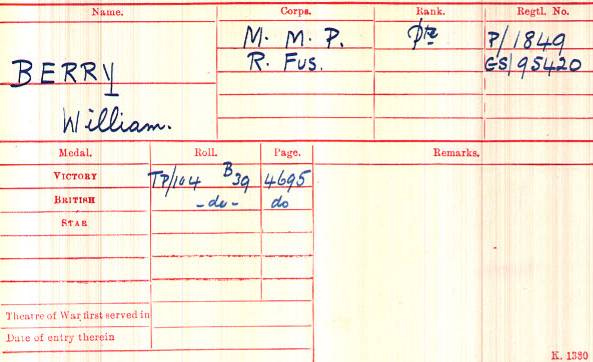 Name. Corps. Rank. Regtl. No.
M. M. P. Pte P/1849
BERRY R. Fus. GS/95420
William.
Medal. Roll. Page. Remarks.
VICTORY TP/104 B39 4695
BRITISH -do- do
STAR
Theatre of War first served in
Date of entry therein
K. 1380